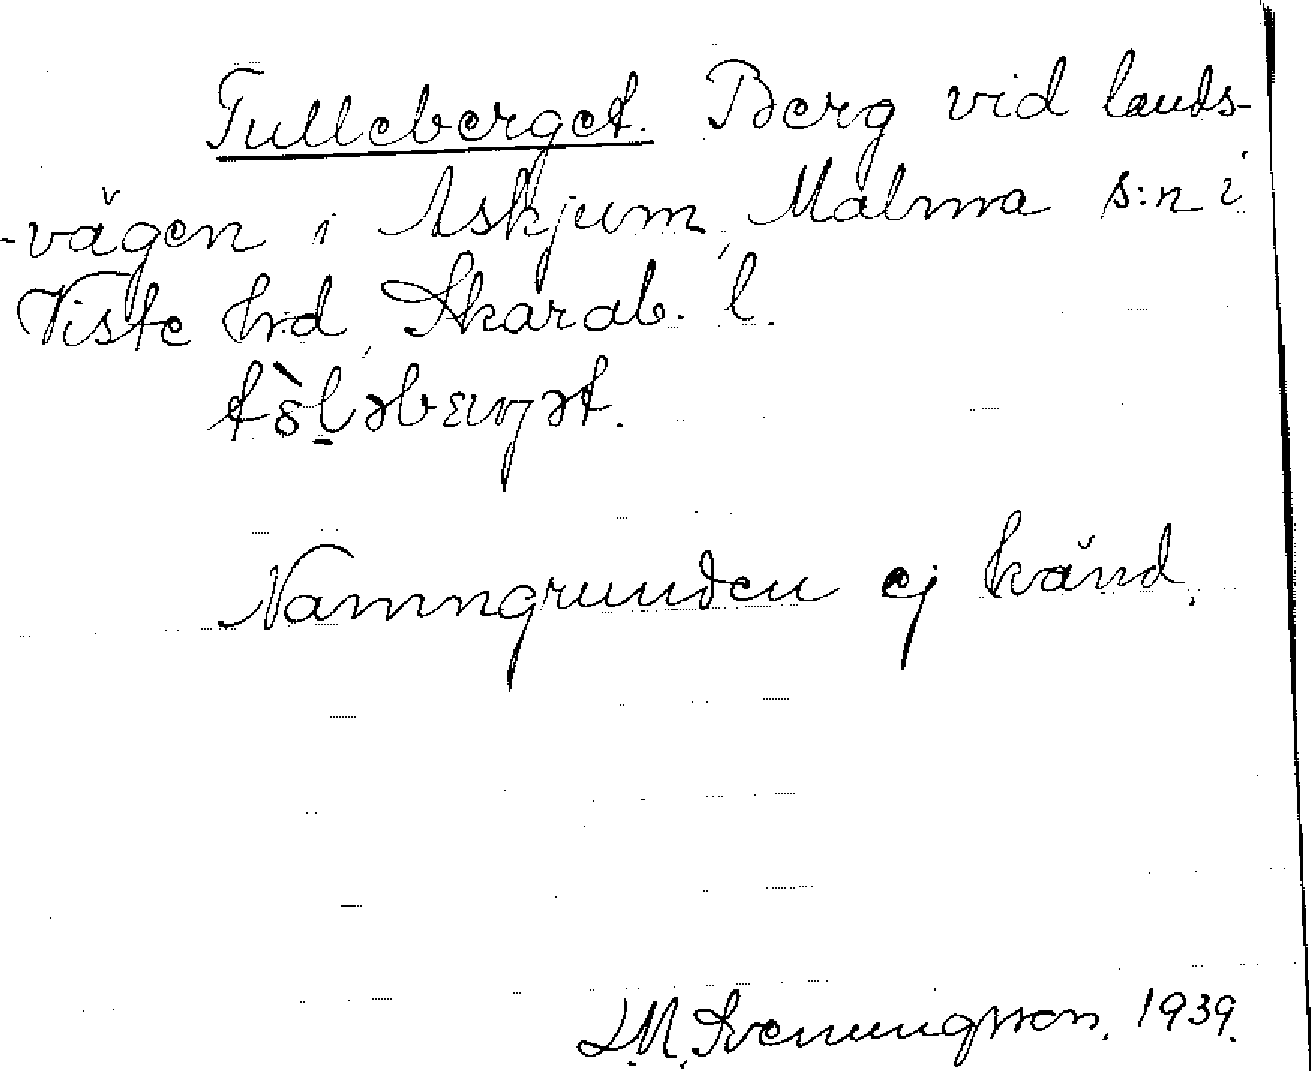 Tulleberget. Berg vid lands-
-vägen i Askjum, Malma s:n i
Viste hrd, Skarab. l.
Namngrunden ej känd.
L.M. Svenungsson. 1939.